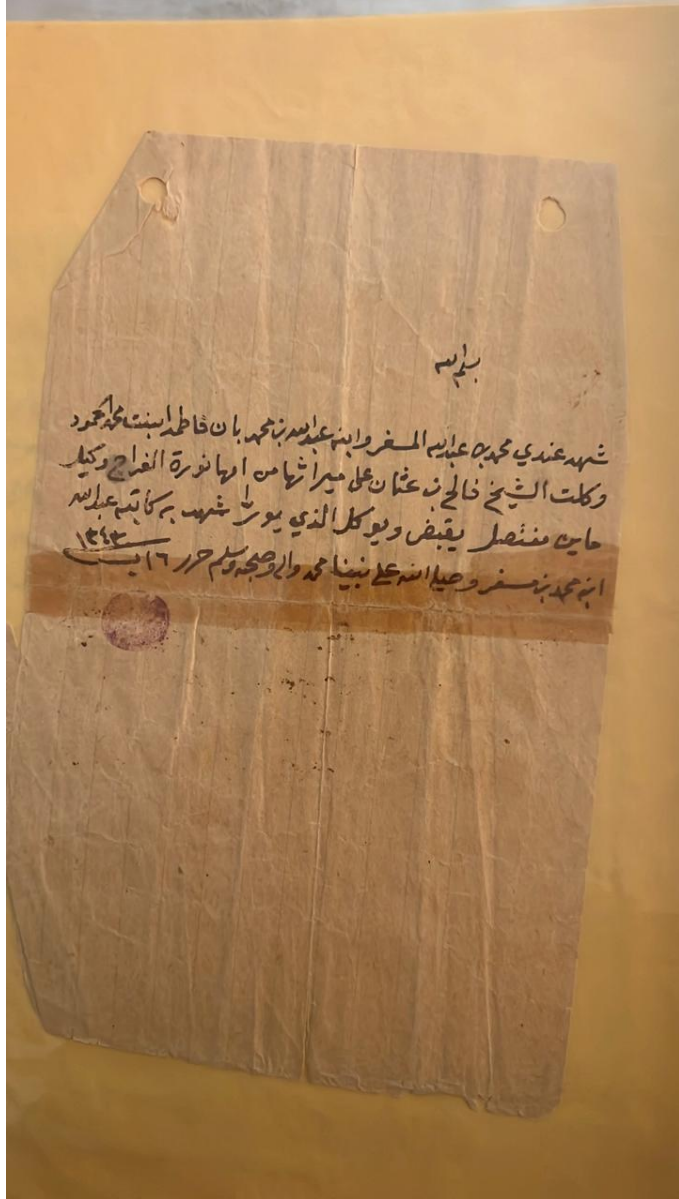 بسم الله
شهد عندي محمد بن عبدالله المسفر وابنه عبدالله بن محمد بان فاطمه ابنت محمد الحمود
وكلت الشيخ فالح بن عثمان على ميراثها من امها نورة الفراج وكيل
ماين منتصل يقبض ويوكل الذي يورا شهد به كاتبه عبدالله
ابن محمد بن مسفر وصلى الله على نبينا محمد واله وصحبه وسلم حرر ١٦
١٣٤٣